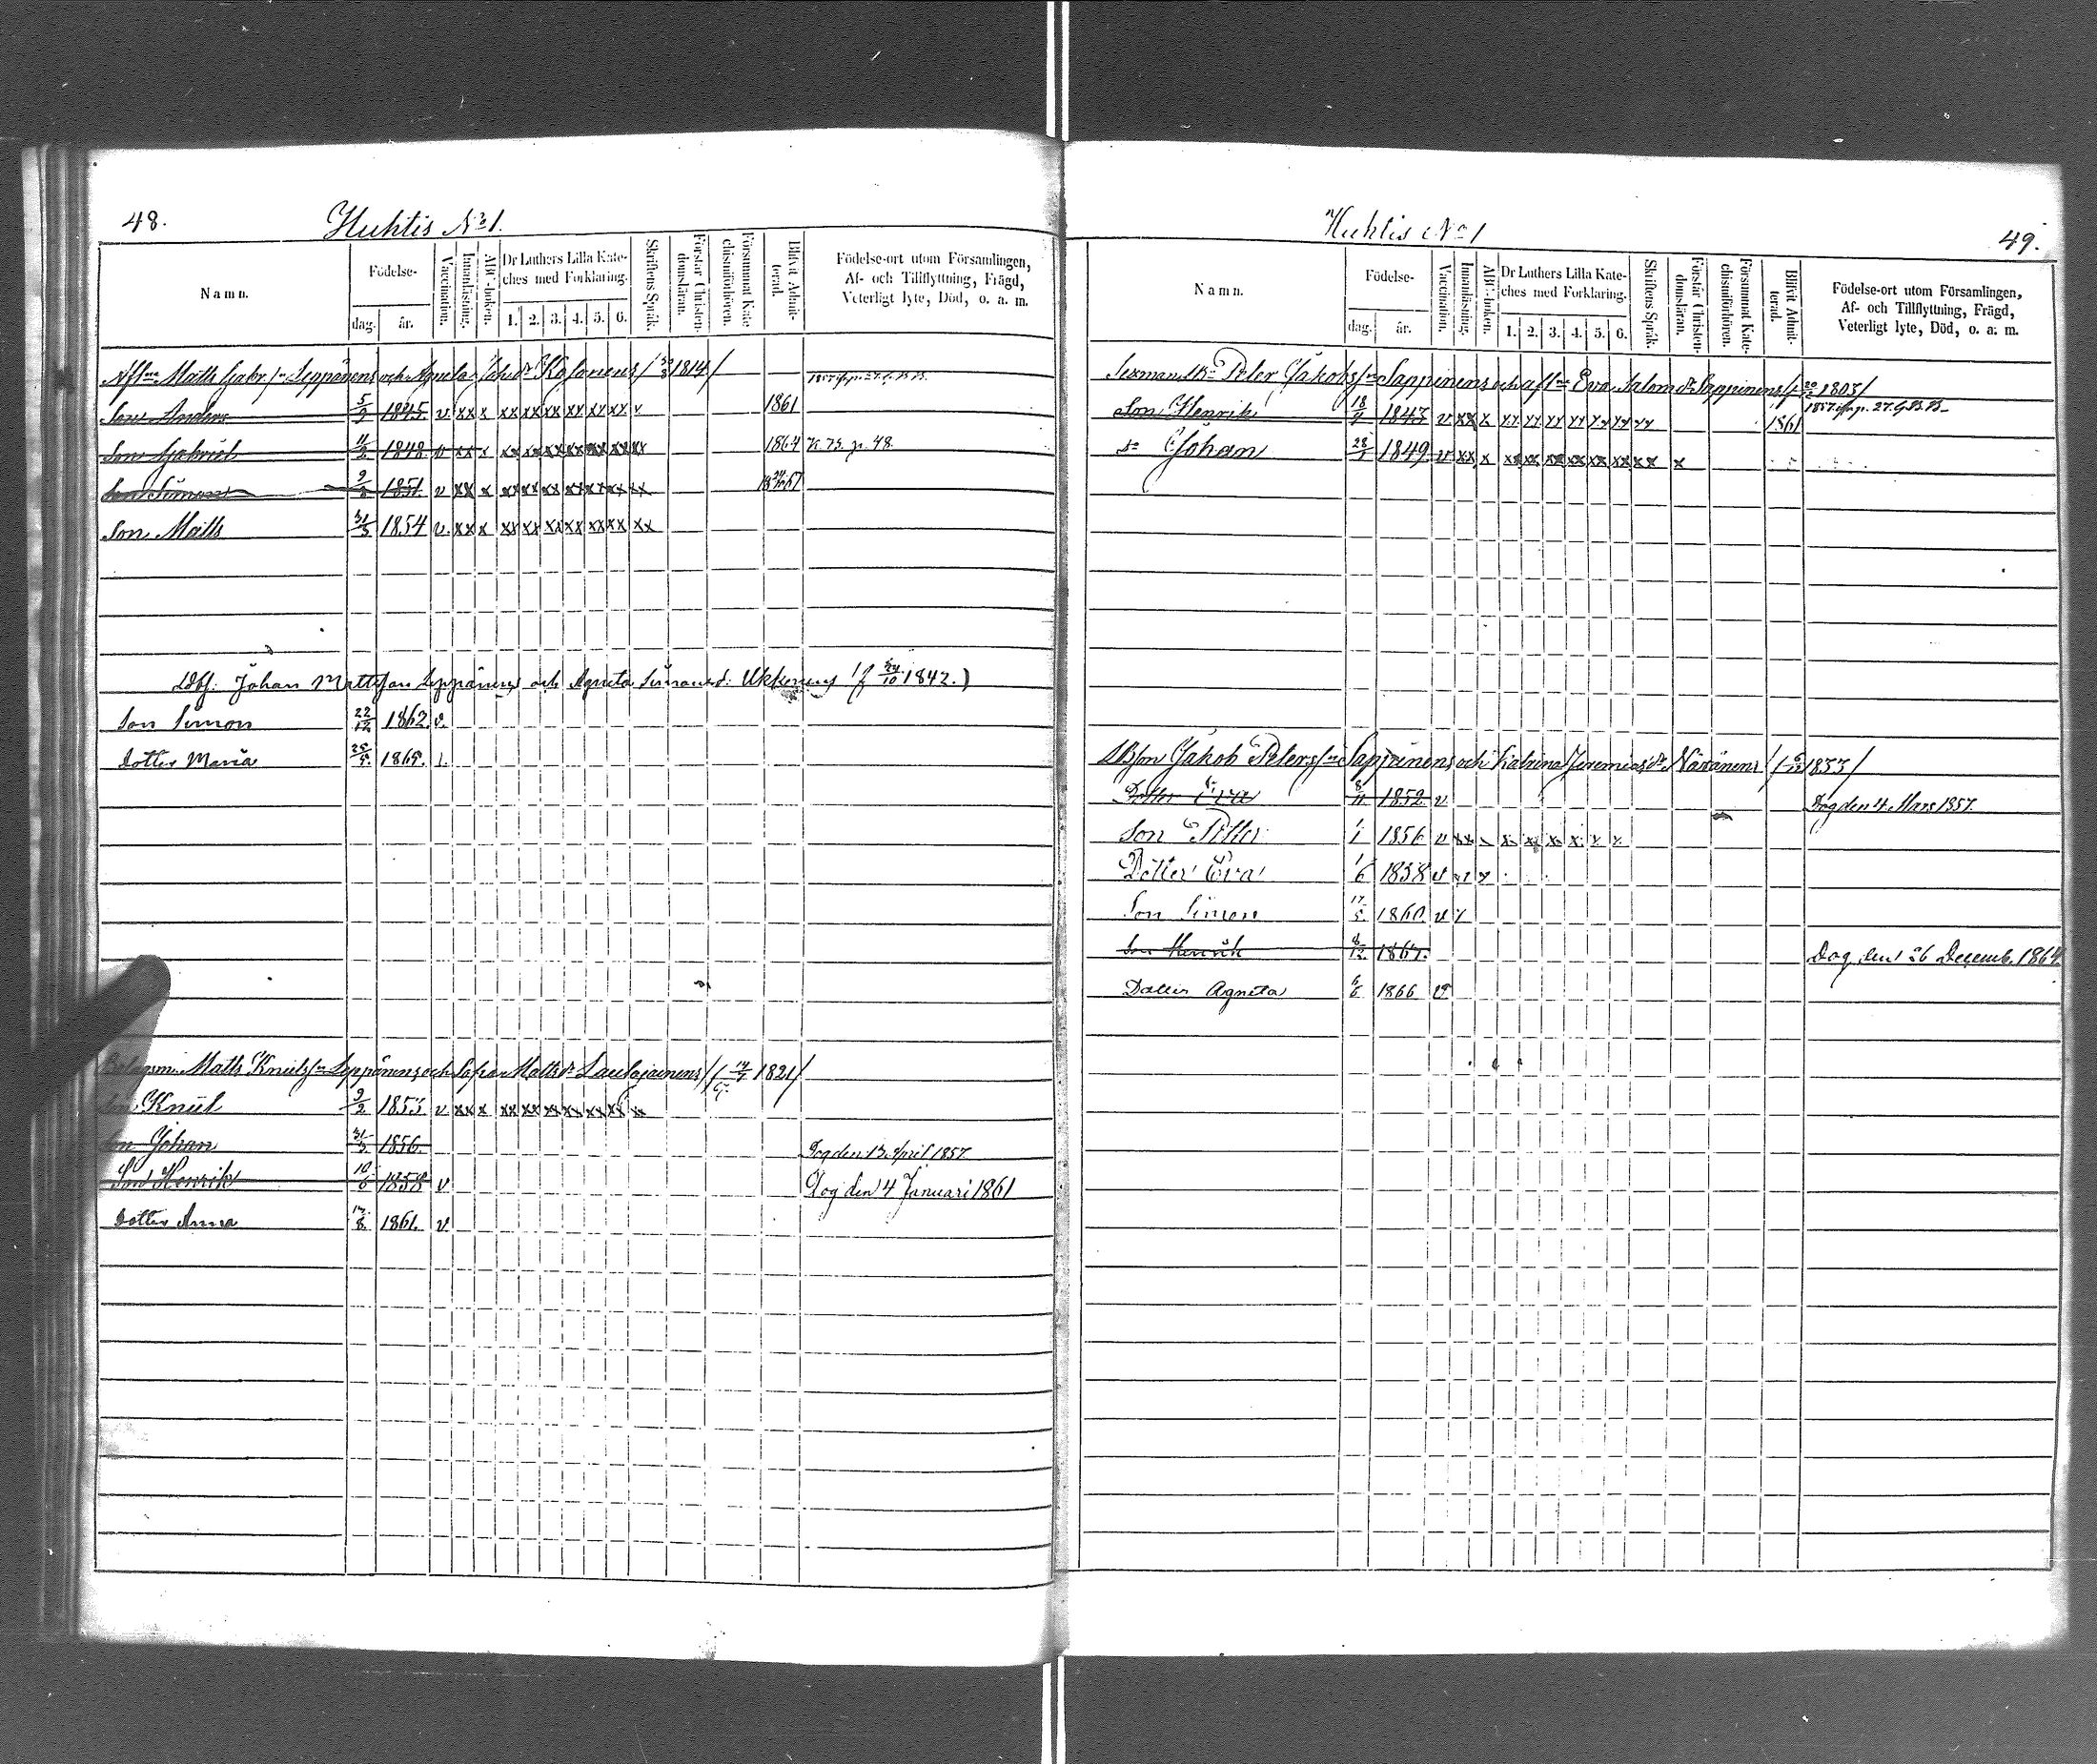 48.
Huhtis No 1.
Namn.
Födelse-
dag.
år.
Vaccination.
Innanläsning.
ABC-boken.
Dr Luthers Lilla Kate-
ches med Forklaring.
1. 2. 3. 4. 5. 6.
Skriftens Språk.
Förstår Christen-
domsläran.
Försummat Kate-
chismiförhören.
Blifvit Admit-
terad.
Födelse-ort utom Församlingen,
Af- och Tillflyttning, Frägd,
Veterligt lyte, Död, o. a. m.
Matts Gabr. Sn Leppänens och Agneta 1814/
Son Anders 5/9 1845 v xx x xx xx xx xx xx xx v 1861
Son Gabriel 1848 v xx x xx xx xx xx xx xx xx 1864 K. 73. p. 48.
Son Simon 1851 v xx x xx xx xx xx xx xx xx
Son Matts 31/3 1854 v. xx x xx xx xx xx xx xx xx
Johan Mattsson Leppänens och Agneta Simonsd: Ukkonens (f 24/10 1842.)
Son Simon 22/12 1862. v.
Dotter Maria 1865.
Matts Knutss Sn Leppänens och Matts dr 1821/
Son Knut 9/2 1853 v xx x xx xx xx xx xx xx
Son Johan 31/3 1856. Dog den 13 April 1857
Son Henrik 10/6 1858 v Dog den 4 Januari 1861
Dotter Anna 1861. v
Huhtis No 1
49.
Namn.
Födelse-
dag.
år.
Vaccination.
Innanläsning.
ABC-boken.
Dr Luthers Lilla Kate-
ches med Forklaring.
1. 2. 3. 4. 5. 6.
Skriftens Språk.
Förstår Christen-
domsläran.
Försummat Kate-
chismiförhören.
Blifvit Admit-
terad.
Födelse-ort utom Församlingen,
Af- och Tillflyttning, Frägd,
Veterligt lyte, Död, o. a. m.
Sexman Peter Jakobs Sn Sappinens och Eva Salom. dr Sappinens
Son Henrik 1843 v xx x 1861
Johan 1849 v xx x xx xx xx xx xx xx xx x
Jakob Peterss Sn Sappinens och Katrina Jeremias dr 1833/
Dotter Eva 8/11 1852. v Dog den 4 Mars 1857
Son Petter 1/1 1856 v xx x x x x x x
Dotter Eva 1/6 1858 v
Son Simon 17/5 1860. v x
Son Henrik 8/12 Dog den 26 Decemb. 1864.
Dotter Agneta 6/6 1866 v